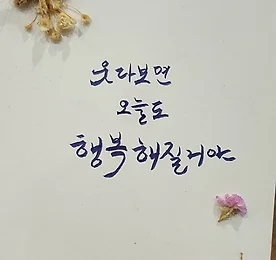 웃다보면
오늘도
행복해질거야